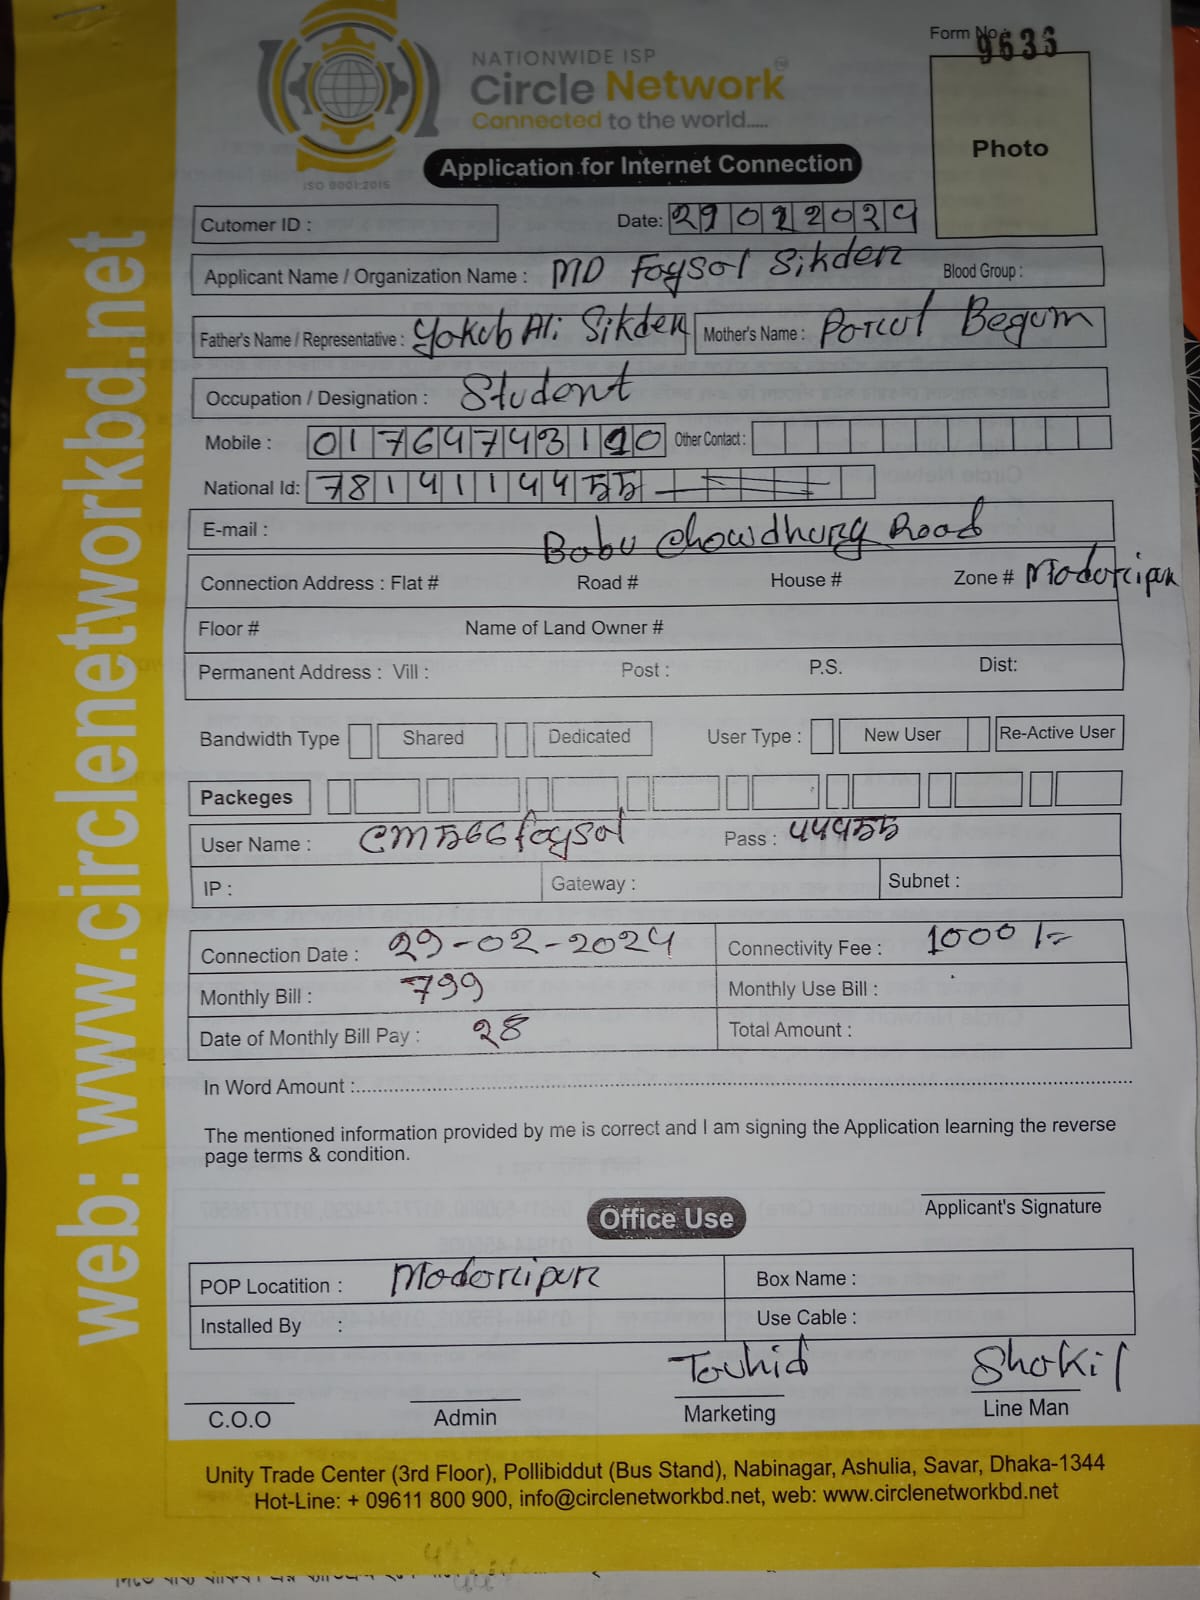 Form No : 9636
NATIONWIDE ISP
Circle Network
Connected to the world.....
ISO 9001:2015
Application for Internet Connection
Photo
Cutomer ID :
Date: 29022024
Applicant Name / Organization Name : MD Foysol Sikder Blood Group :
Father's Name / Representative : Yokub Ali Sikder Mother's Name : Porul Begum
Occupation / Designation : Student
Mobile : 01764743190 Other Contact :
National Id: 7814114455
E-mail :
Babu Chowdhury Road
Connection Address : Flat # Road # House # Zone # Modoripur
Floor # Name of Land Owner #
Permanent Address : Vill : Post : P.S. Dist:
Bandwidth Type Shared Dedicated User Type : New User Re-Active User
Packeges
User Name : CM566foysol Pass : 444455
IP : Gateway : Subnet :
Connection Date : 29-02-2024 Connectivity Fee : 1000/=
Monthly Bill : 799 Monthly Use Bill :
Date of Monthly Bill Pay : 28 Total Amount :
In Word Amount :
The mentioned information provided by me is correct and I am signing the Application learning the reverse
page terms & condition.
Applicant's Signature
Office Use
POP Locatition : Modoripur Box Name :
Installed By : Use Cable :
Touhid Shokil
C.O.O Admin Marketing Line Man
Unity Trade Center (3rd Floor), Pollibiddut (Bus Stand), Nabinagar, Ashulia, Savar, Dhaka-1344
Hot-Line: + 09611 800 900, info@circlenetworkbd.net, web: www.circlenetworkbd.net
web: www.circlenetworkbd.net